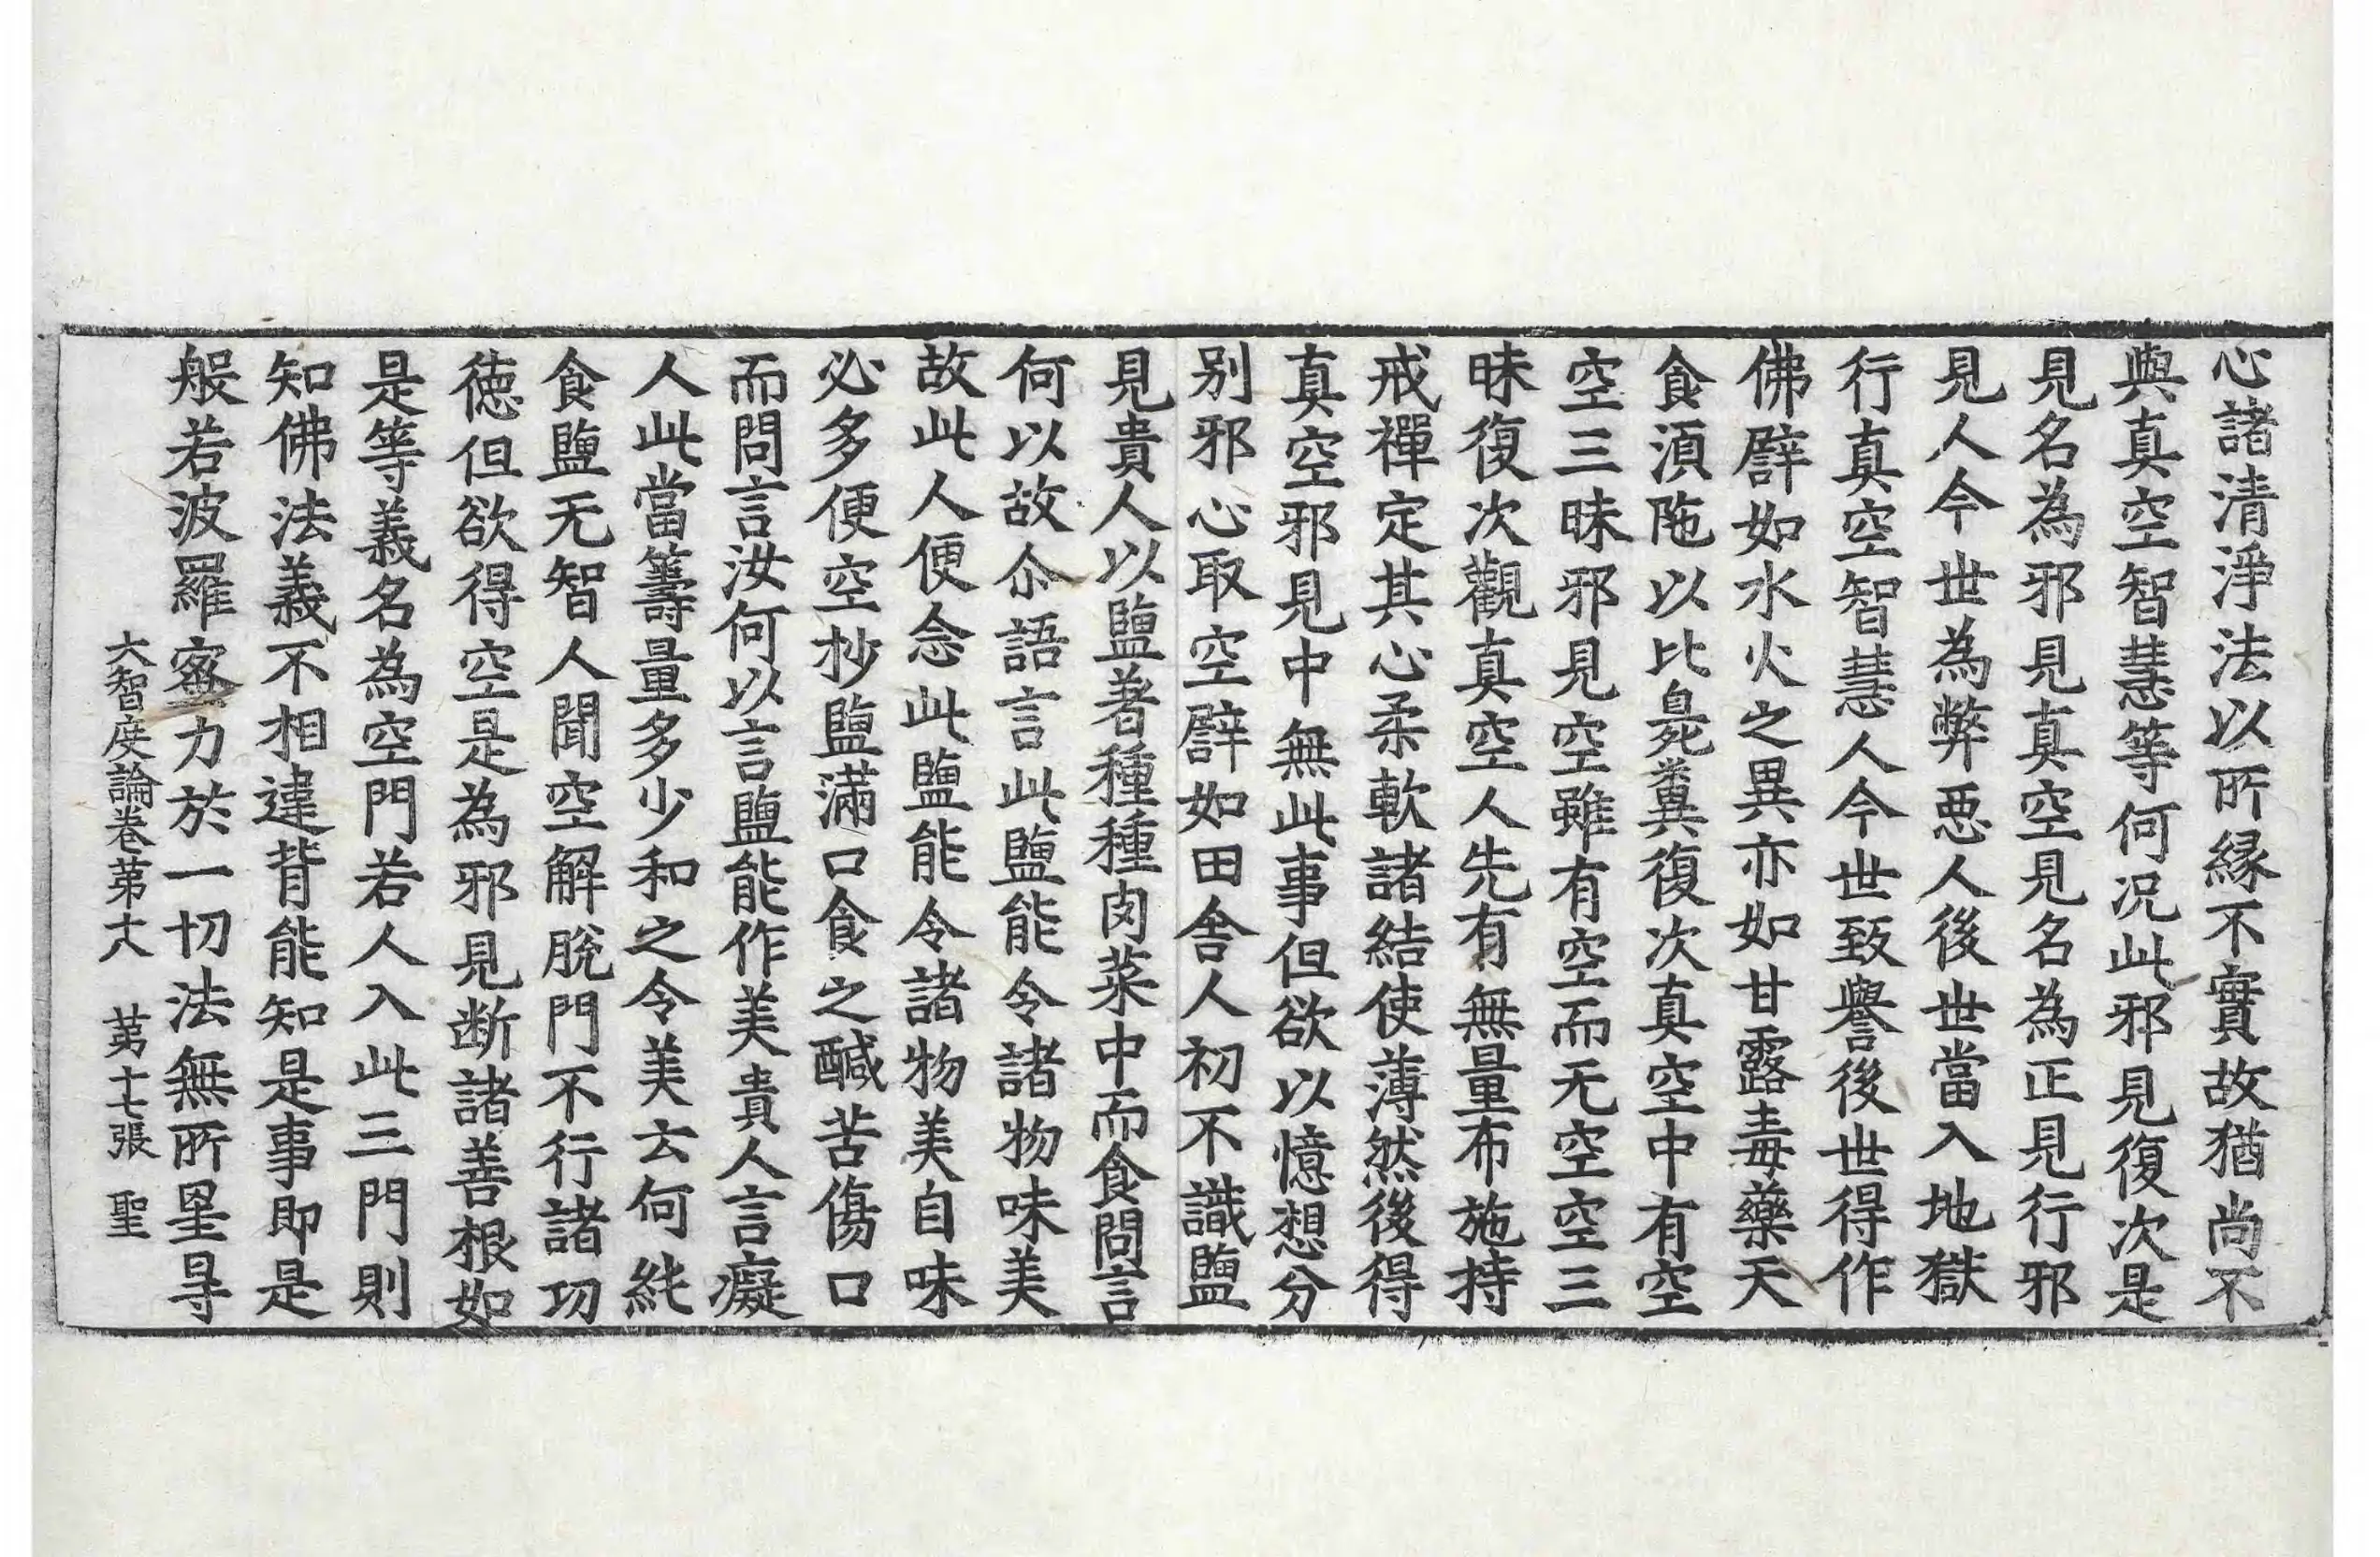 心諸清淨法以所縁不實故猶尚不
與真空智慧等何况此邪見復次是
見名為邪見真空見名為正見行邪
見人今世為弊惡人後世當入地獄
行真空智慧人今世致譽後世得作
佛譬如水火之異亦如甘露毒藥天
食湏陁以比臰糞復次真空中有空
空三昧邪見空雖有空而无空空三
昧復次觀真空人先有無量布施持
戒禪定其心柔軟諸結使薄然後得
真空邪見中無此事但欲以憶想分
别邪心取空譬如田舎人初不識鹽
見貴人以鹽著種種肉菜中而食問言
何以故尒語言此鹽能令諸物味美
故此人便念此鹽能令諸物美自味
必多便空抄鹽滿口食之醎苦傷口
而問言汝何以言鹽能作美貴人言癡
人此當籌量多少和之令美云何純
食鹽无智人聞空解脫門不行諸功
德但欲得空是為邪見断諸善根如
是等義名為空門若人入此三門則
知佛法義不相違背能知是事即是
般若波羅蜜力於一切法無所罣㝵
大智度論卷第十八　第十七張　聖